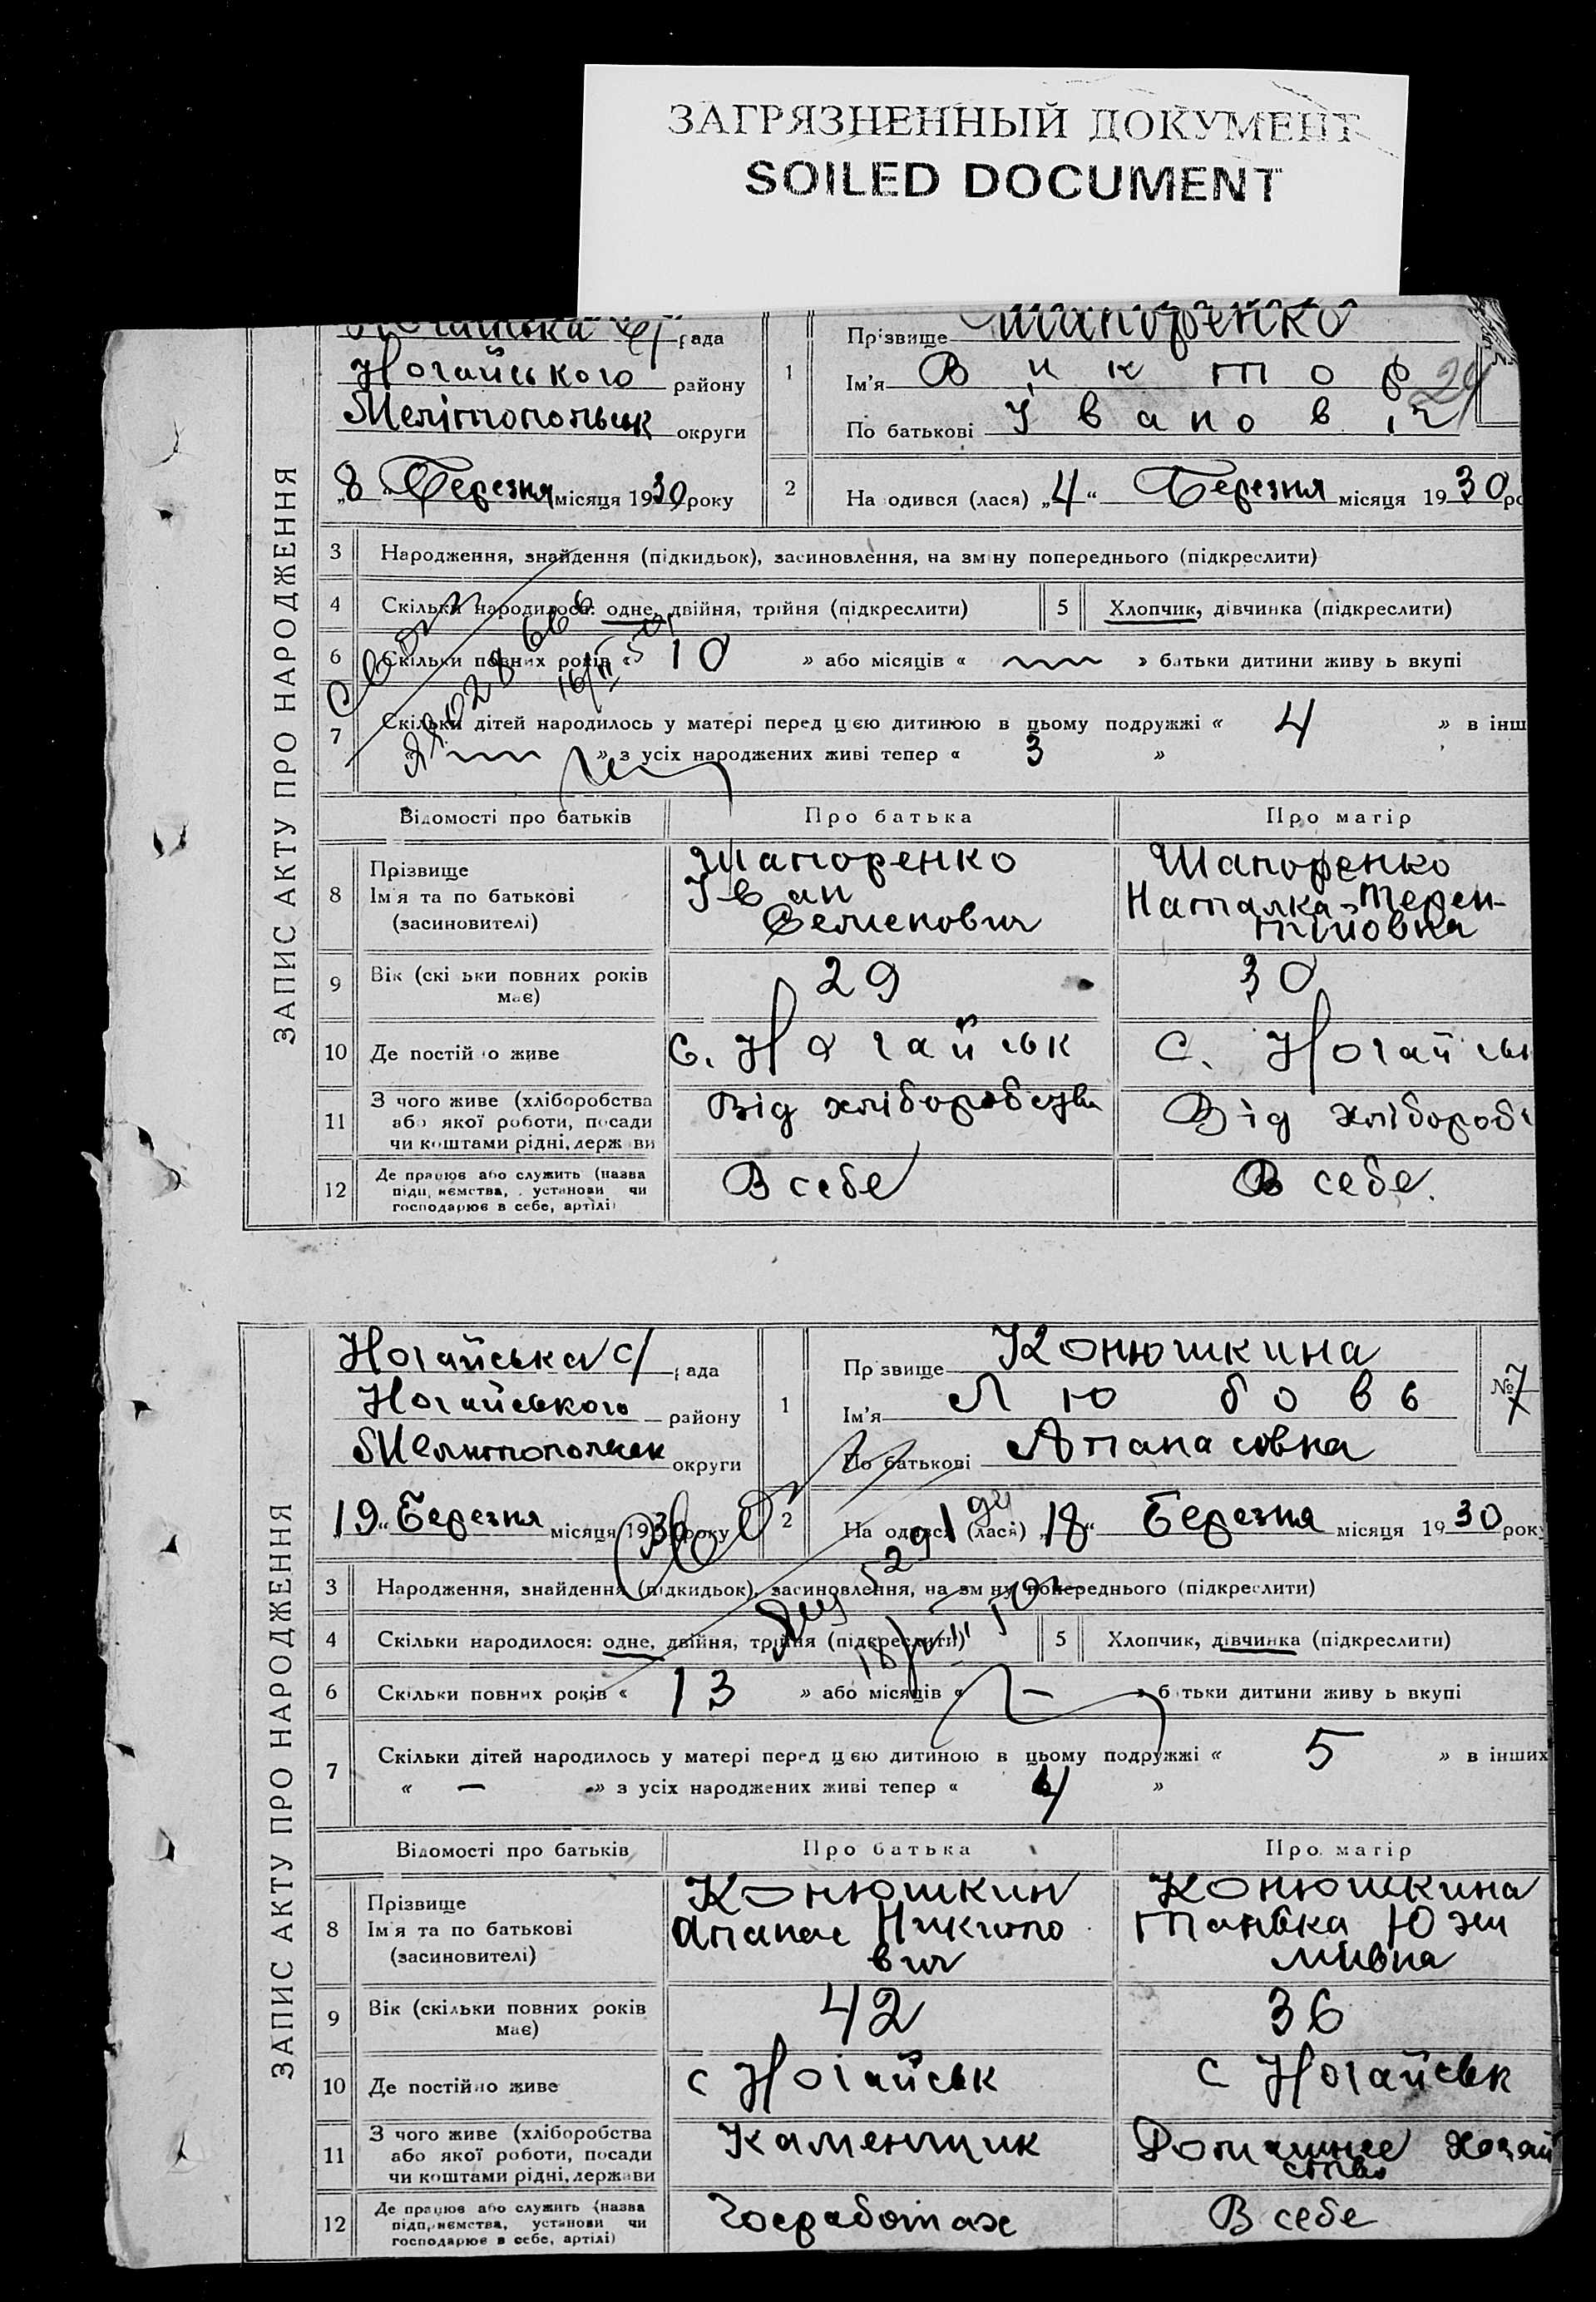 ЗАГРЯЗНЕННЫЙ ДОКУМЕНТ
SOILED DOCUMENT
ЗАПИС АКТУ ПРО НАРОДЖЕННЯ
рада
Ногайського району
Мелітопольськ округи
„8“ Березня місяця 1930 року
1 Прізвище Шапоренко
Ім'я Виктор
По батькові Іванович
24
2 На одився (лася) „4“ Березня місяця 1930 ро
3 Народження, знайдення (підкидьок), засиновлення, на зм ну попереднього (підкреслити)
4 Скільки народилося: одне, двійня, трійня (підкреслити) 5 Хлопчик, дівчинка (підкреслити)
6 Скільки повних років « 10 » або місяців « » батьки дитини живу ь вкупі
7 Скільки дітей народилось у матері перед цією дитиною в цьому подружжі « 4 » в інш
» з усіх народжених живі тепер « 3 »
Відомості про батьків Про батька Про матір
8 Прізвище
Ім'я та по батькові
(засиновителі)
Шапоренко
Іван
Семенович
Шапоренко
Наталка Терен-
тиіовна
9 Вік (скі ьки повних років
має)
29 30
10 Де постій о живе с. Ногайськ с. Ногайськ
11 З чого живе (хліборобства
або якої роботи, посади
чи коштами рідні, держ ви
Від хліборобства Від хліборобс
12 Де працює або служить (назва
підп, иємства, установи чи
господарює в себе, артілі)
В себе В себе.
ЗАПИС АКТУ ПРО НАРОДЖЕННЯ
Ногайська с/ рада
Ногайського району
Мелитопольськ округи
„19“ Березня місяця 1930 року
1 Пр звище Конюшкина
Ім'я Любовь
По батькові Апанасовна
№ 7
2 На одився (лася) „18“ Березня місяця 1930 року
3 Народження, знайдення (підкидьок), засиновлення, на зм ну попереднього (підкреслити)
4 Скільки народилося: одне, двійня, трійня (підкреслити) 5 Хлопчик, дівчинка (підкреслити)
6 Скільки повних років « 13 » або місяців « – » б тьки дитини живу ь вкупі
7 Скільки дітей народилось у матері перед цією дитиною в цьому подружжі « 5 » в інших
« – » з усіх народжених живі тепер « 4 »
Відомості про батьків Про батька Про матір
8 Прізвище
Ім'я та по батькові
(засиновителі)
Конюшкин
Апанас Никито
вич
Конюшкина
Танька
9 Вік (скільки повних років
має)
42 36
10 Де постійно живе с Ногайськ с Ногайськ
11 З чого живе (хліборобства
або якої роботи, посади
чи коштами рідні, держави
Каменщик Домашнее хозяй
ство
12 Де працює або служить (назва
підприємства, установи чи
господарює в себе, артілі)
Госработах В себе